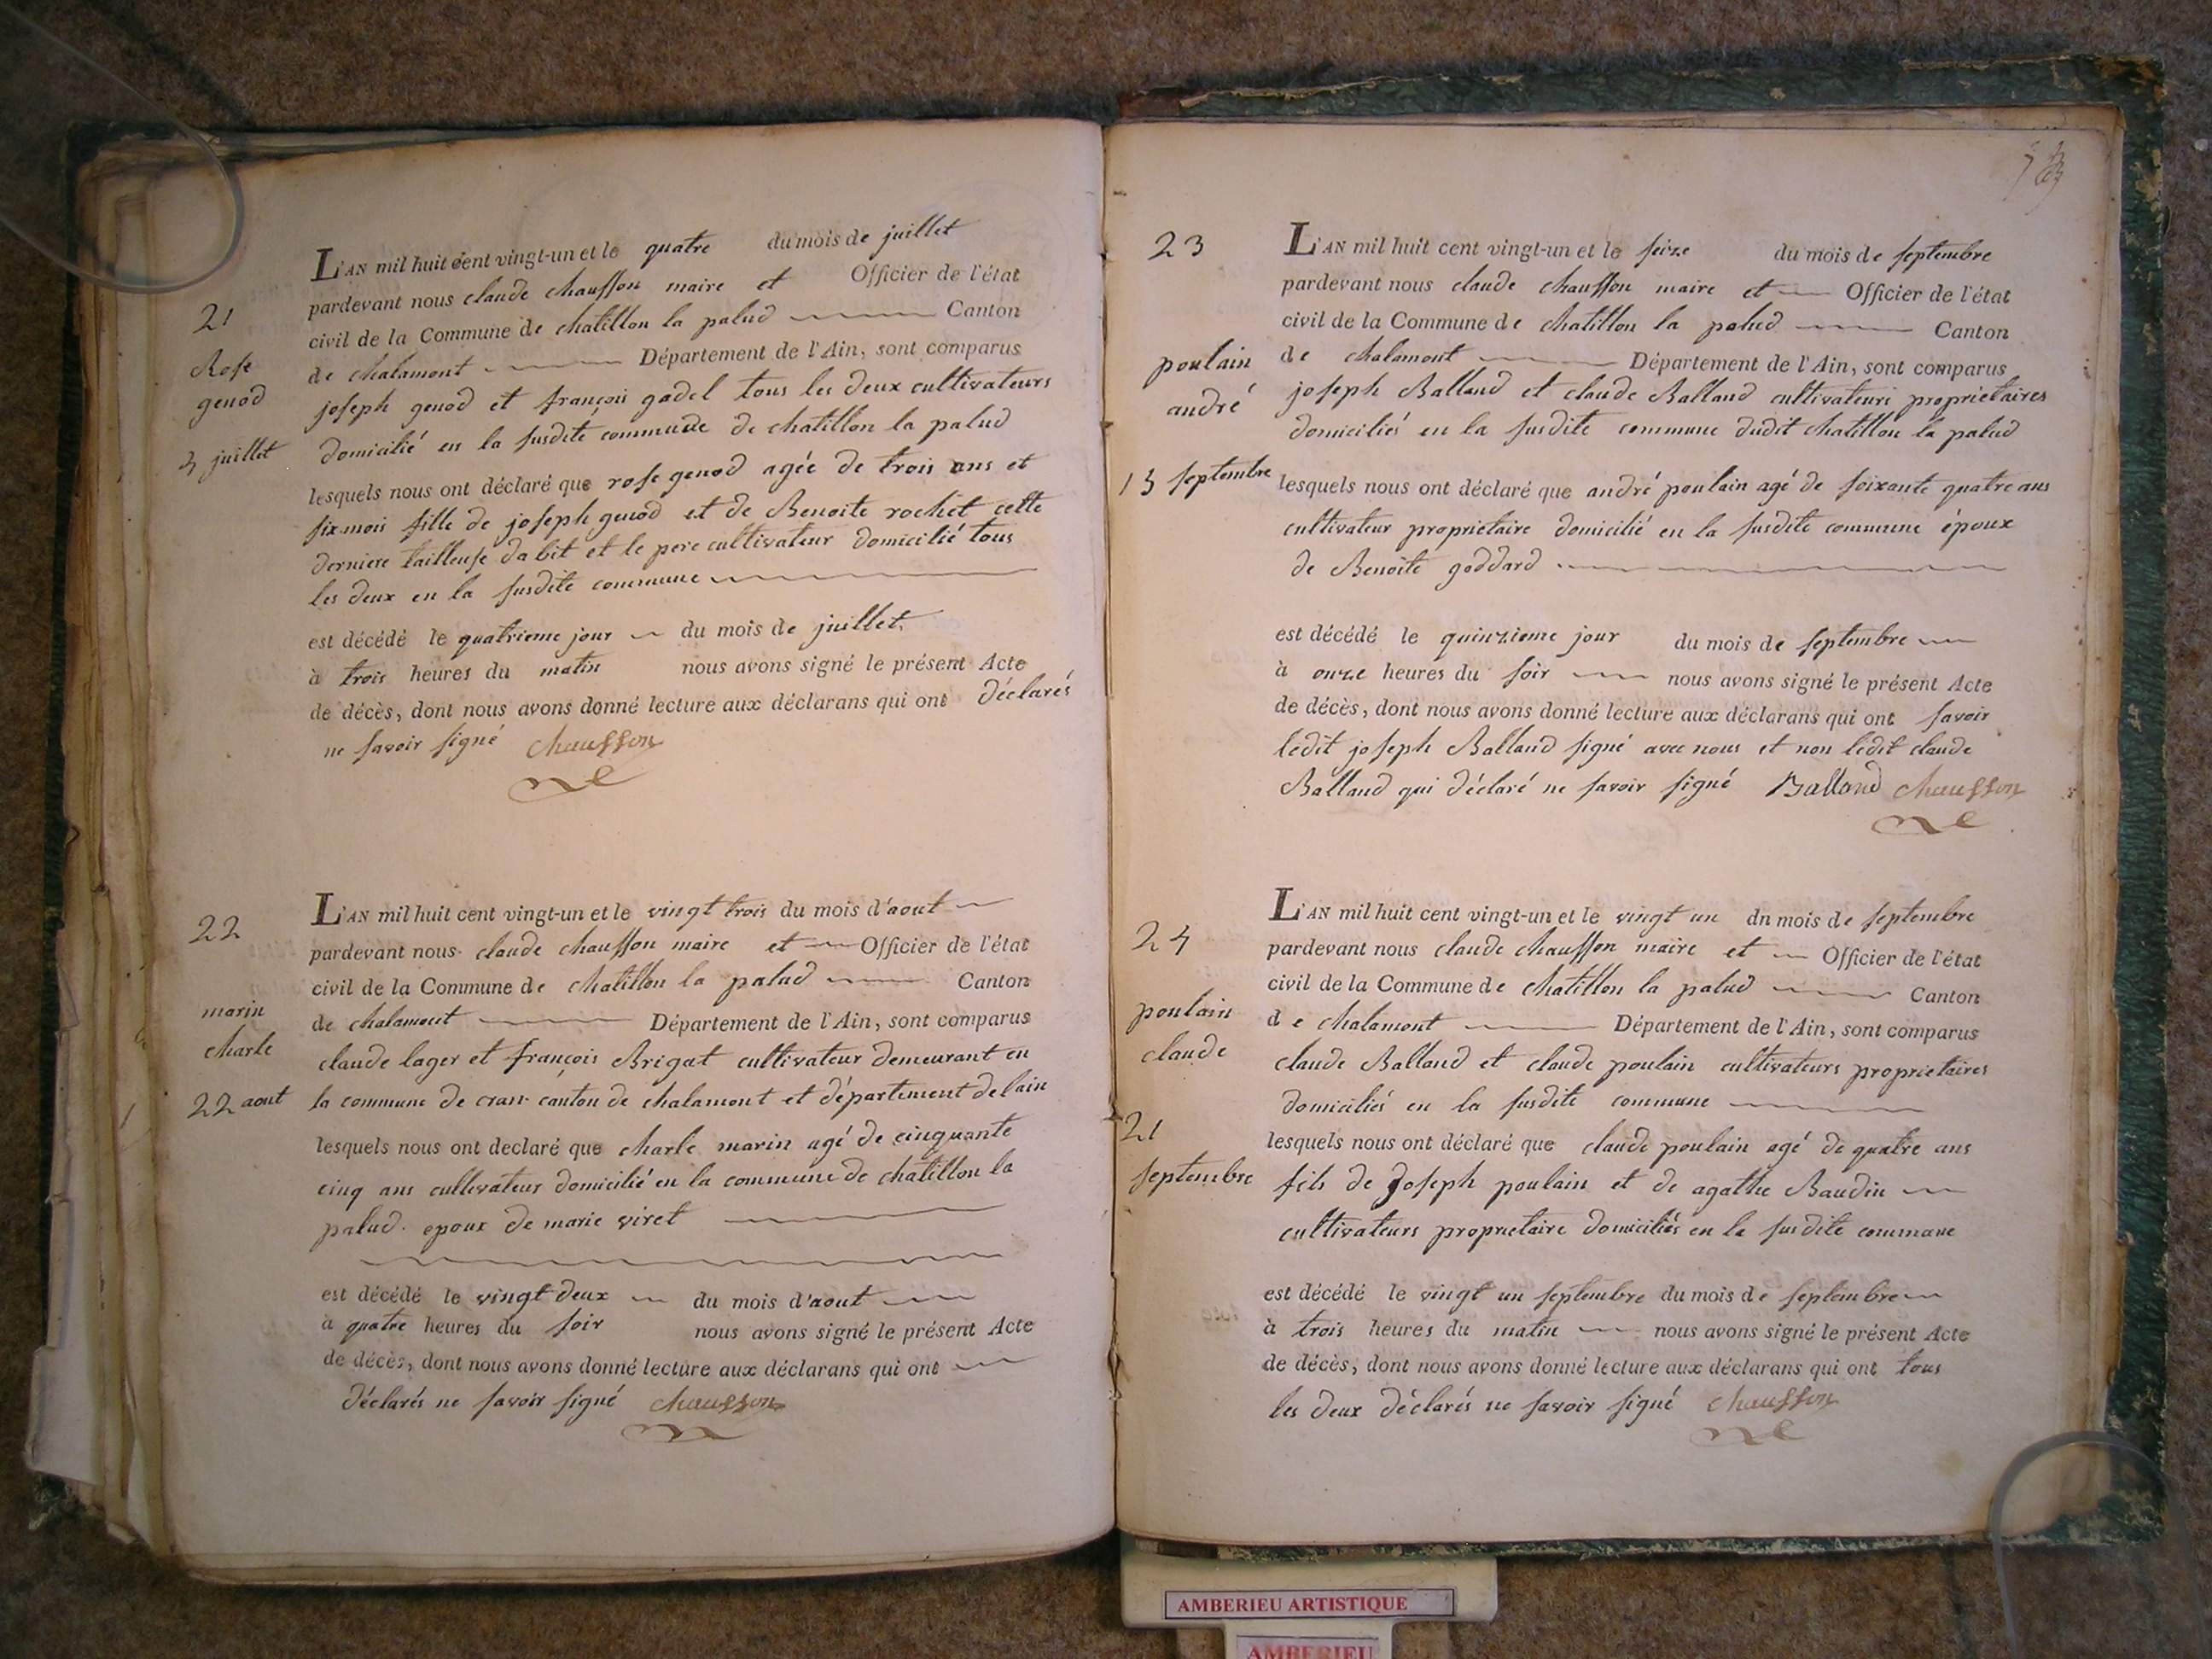 21
Rose
genod
4 juillet
L'AN mil huit cent vingt-un et le quatre du mois de juillet
pardevant nous claude chausson maire et Officier de l'état
civil de la Commune de chatillon la palud Canton
de chalamont Département de l'Ain, sont comparus
joseph genod et françois gadel tous les deux cultivateurs
domicilié en la susdite commune de chatillon la palud
lesquels nous ont déclaré que rose genod agée de trois ans et
six mois fille de joseph genod et de Benoite rochet cette
derniere tailleuse dabit et le pere cultivateur domicilié tous
les deux en la susdite commune
est décédé le quatrieme jour du mois de juillet.
à trois heures du matin nous avons signé le présent Acte
de décès, dont nous avons donné lecture aux déclarans qui ont déclarés
ne savoir signé chausson
22
marin
charle
22 aout
L'AN mil huit cent vingt-un et le vingt trois du mois d'aout
pardevant nous claude chausson maire et Officier de l'état
civil de la Commune de chatillon la palud Canton
de chalamont Département de l'Ain, sont comparus
claude lager et françois Brigat cultivateur demeurant en
la commune de cran canton de chalamont et département de lain
lesquels nous ont declaré que charle marin agé de cinquante
cinq ans cultivateur domicilié en la commune de chatillon la
palud. epoux de marie viret
est décédé le vingt deux du mois d'aout
à quatre heures du soir nous avons signé le présent Acte
de décès, dont nous avons donné lecture aux déclarans qui ont
déclarés ne savoir signé chausson
23
poulain
andré
15 septembre
L'AN mil huit cent vingt-un et le seize du mois de septembre
pardevant nous claude chausson maire et Officier de l'état
civil de la Commune de chatillon la palud Canton
de chalamont Département de l'Ain, sont comparus
joseph Balland et claude Balland cultivateurs proprietaires
domiciliés en la susdite commune dudit chatillon la palud
lesquels nous ont déclaré que andré poulain agé de soixante quatre ans
cultivateur proprietaire domicilié en la susdite commune époux
de Benoite goddard
est décédé le quinzieme jour du mois de septembre
à onze heures du soir nous avons signé le présent Acte
de décès, dont nous avons donné lecture aux déclarans qui ont savoir
ledit joseph Balland signé avec nous et non ledit claude
Balland qui déclaré ne savoir signé Balland chausson
24
poulain
claude
21
septembre
L'AN mil huit cent vingt-un et le vingt un dn mois de septembre
pardevant nous claude chausson maire et Officier de l'état
civil de la Commune de chatillon la palud Canton
de chalamont Département de l'Ain, sont comparus
claude Balland et claude poulain cultivateurs proprietaires
domiciliés en la susdite commune
lesquels nous ont déclaré que claude poulain agé de quatre ans
fils de Joseph poulain et de agathe Baudin
cultivateurs proprietaire domiciliés en la susdite commune
est décédé le vingt un septembre du mois de septembre
à trois heures du matin nous avons signé le présent Acte
de décès, dont nous avons donné lecture aux déclarans qui ont tous
les deux déclarés ne savoir signé chausson
AMBERIEU ARTISTIQUE
AMBERIEU